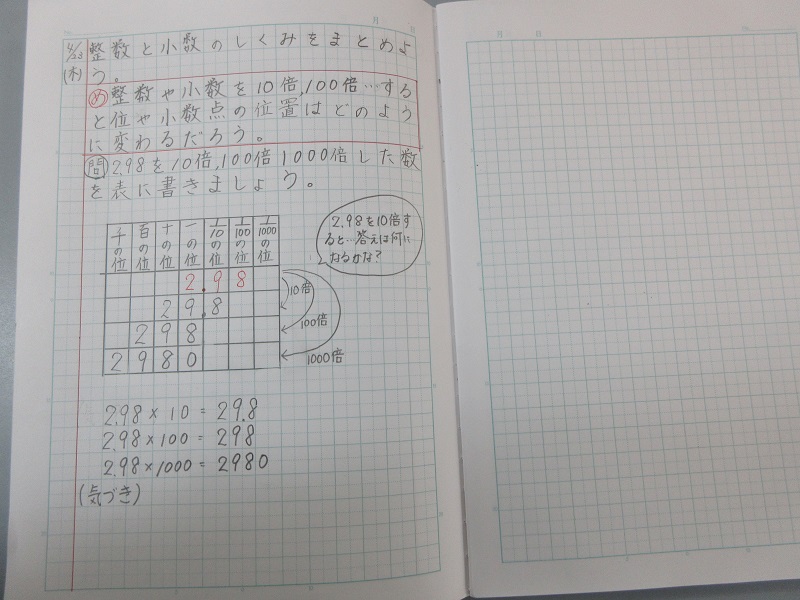 4/23 整数と小数のしくみをまとめよ
(木) う。
め 整数や小数を10倍,100倍…する
と位や小数点の位置はどのよう
に変わるだろう。
問 2.98を10倍,100倍1000倍した数
を表に書きましょう。
千の位 百の位 十の位 一の位 1/10の位 1/100の位 1/1000の位
2.98
29.8
298
2980
10倍
100倍
1000倍
2.98を10倍す
ると…答えは何に
なるかな?
2.98 × 10 = 29.8
2.98 × 100 = 298
2.98 × 1000 = 2980
(気づき)
月 日